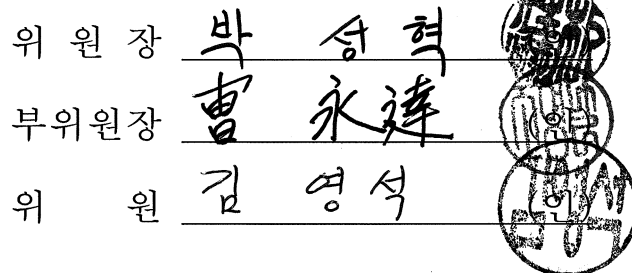 위 원 장 박 성 혁 인
부위원장 曺 永 達 인
위 원 김 영 석 인